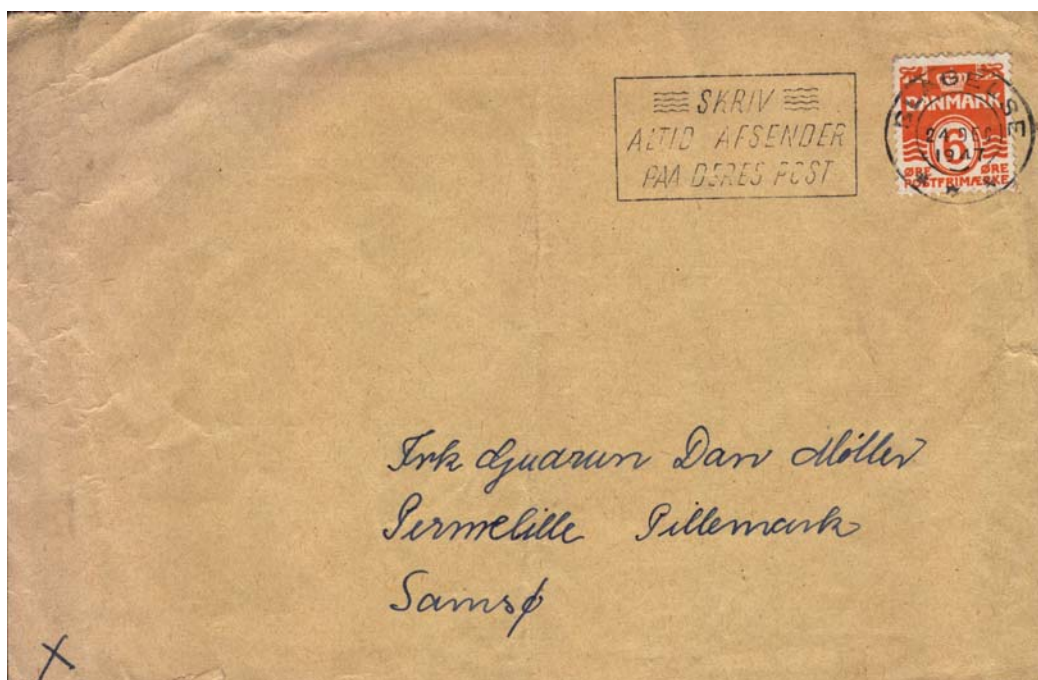 SKRIV
ALTID AFSENDER
PAA DERES POST
SLAGELSE
24 DEC
1947
DANMARK
6
ØRE ØRE
POSTFRIMÆRKE
Frk Gudrun Dan Møller
Permelille Pillemark
Samsø
X